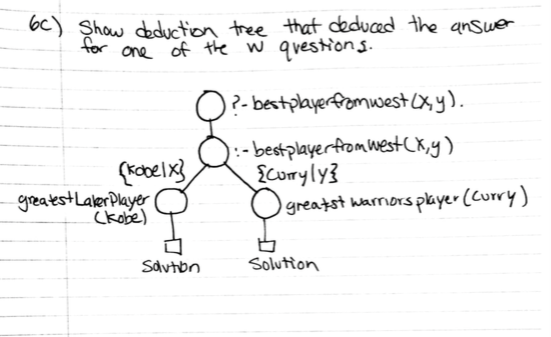 6c) Show deduction tree that deduced the answer
for one of the W questions.
?- bestplayerfromwest(X,y).
:- bestplayerfromWest(X,y)
{kobe|X} {Curry|y}
greatestLakerPlayer
(kobe)
greatst warriors player (Curry)
Solution Solution